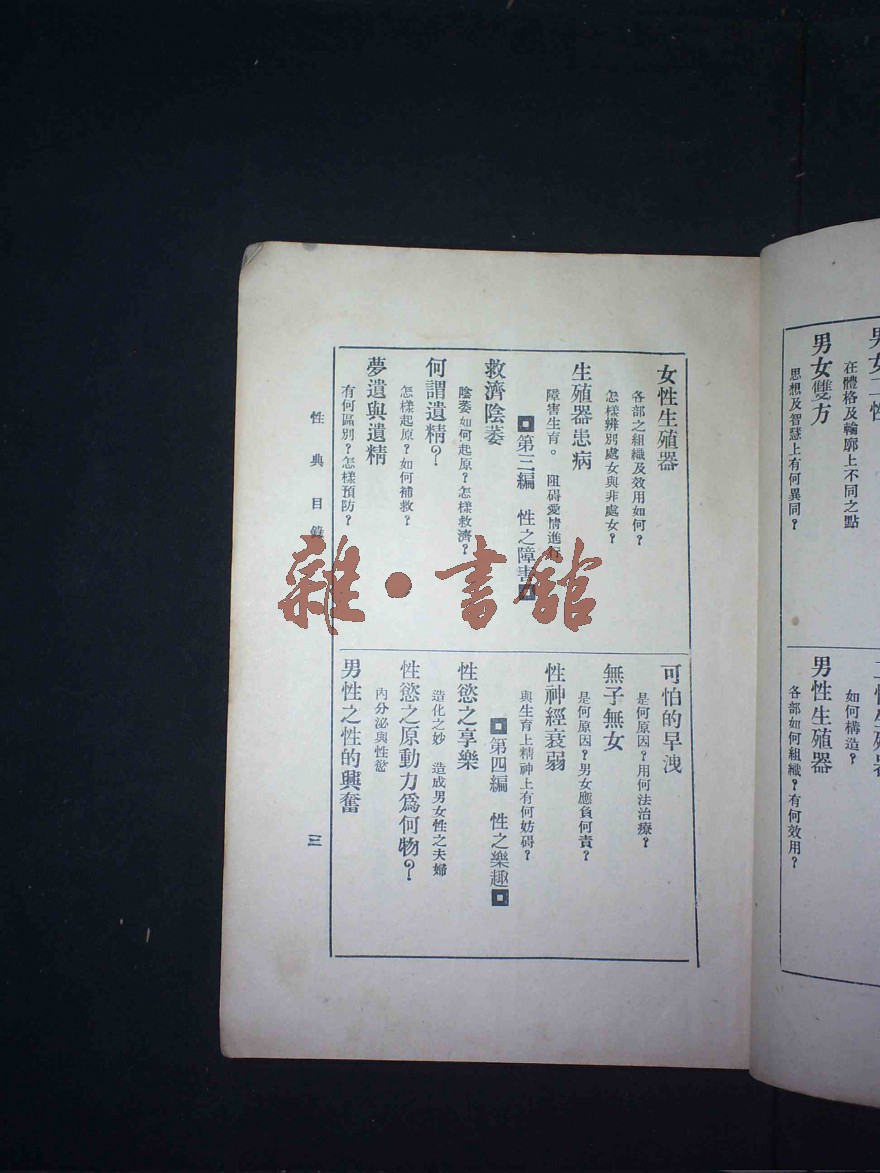 男女二性
在體格及輪廓上不同之點
男女雙方
思想及智慧上有何異同？
如何構造？
男性生殖器
各部如何組織？有何效用？
女性生殖器
各部之組織及效用如何？
怎樣辨別處女與非處女？
生殖器患病
障害生育。　阻碍愛情進行
第三編　性之障害
救濟陰萎
陰萎如何起原？怎樣救濟？
何謂遺精？
怎樣起原？如何補救？
夢遺與遺精
有何區別？怎樣預防？
可怕的早洩
是何原因？用何法治療？
無子無女
是何原因？男女應負何責？
性神經衰弱
與生育上精神上有何妨碍？
第四編　性之樂趣
性慾之享樂
造化之妙　造成男女性之夫婦
性慾之原動力爲何物？
內分泌與性慾
男性之性的興奮
性典目錄
三
雜·書館